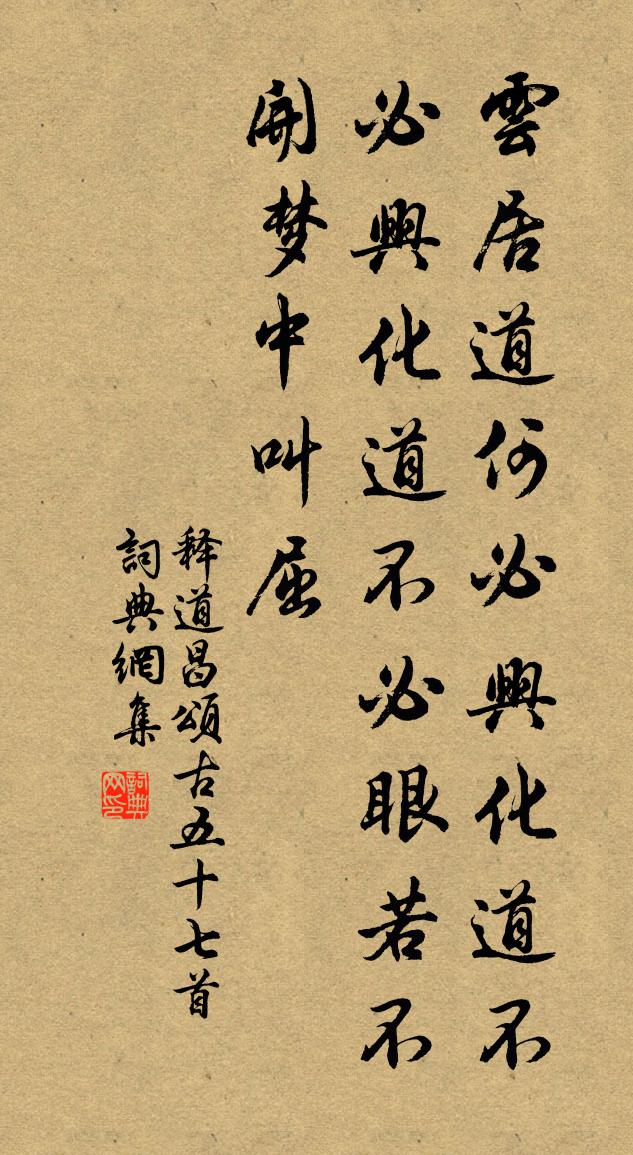 雲居道何必興化道不
必興化道不必眼若不
開梦中叫屈
释道昌頌古五十七首
詞典網集
詞典网印